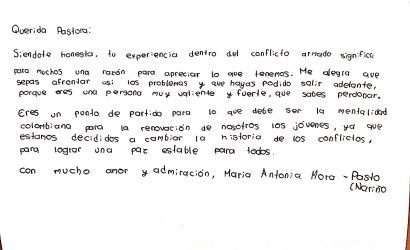 Querida Pastora:
Siendote honesta, tu experiencia dentro del conflicto armado significó
para muchos una razón para apreciar lo que tenemos. Me alegra que
sepas afrontar así los problemas y que hayas podido salir adelante,
porque eres una persona muy valiente y fuerte, que sabes perdonar.
Eres un punto de partida para lo que debe ser la mentalidad
colombiana para la renovación de nosotros los jóvenes, ya que
estamos decididos a cambiar la historia de los conflictos,
para lograr una paz estable para todos.
Con mucho amor y admiración, Maria Antonia Mora - Pasto
(Nariño